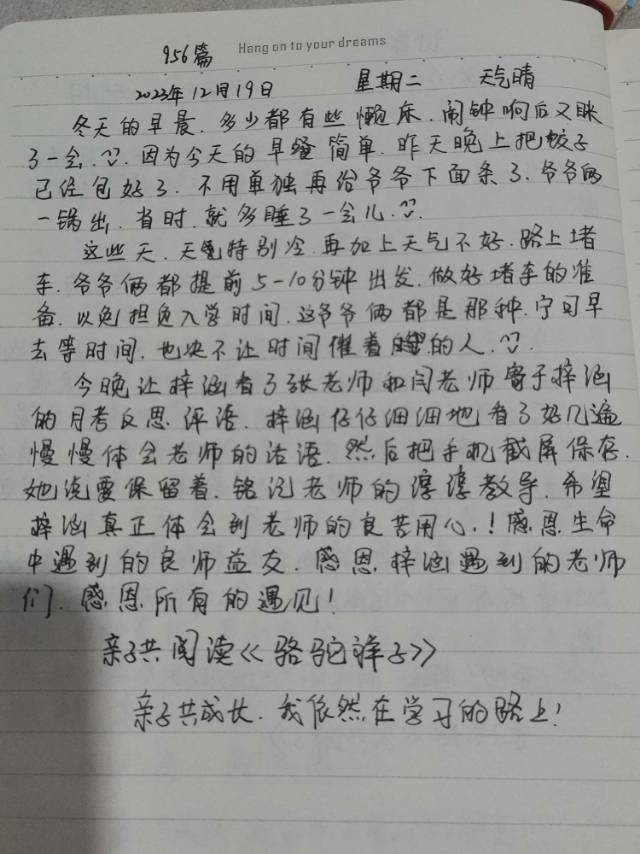 956篇
Hang on to your dreams
2023年12月19日 星期二 天气晴
冬天的早晨.多少都有些懒床.闹钟响后又眯
了一会.因为今天的早餐简单.昨天晚上把饺子
已经包好了.不用单独再给爷爷下面条了.爷爷俩
一锅出.省时.就多睡了一会儿.
这些天.天气特别冷.再加上天气不好.路上堵
车.爷爷俩都提前5-10分钟出发.做好堵车的准
备.以免担负入学时间.这爷爷俩都是那种.宁可早
去等时间.也决不让时间催着的人.
今晚让梓涵看了张老师和闫老师寄予梓涵
的月考反思评语.梓涵仔仔细细地看了好几遍
慢慢体会老师的话语.然后把手机截屏保存.
她说要保留着.铭记老师的谆谆教导.希望
梓涵真正体会到老师的良苦用心.!感恩生命
中遇到的良师益友.感恩.梓涵遇到的老师
们.感恩所有的遇见!
亲子共阅读《骆驼祥子》
亲子共成长.我依然在学习的路上!